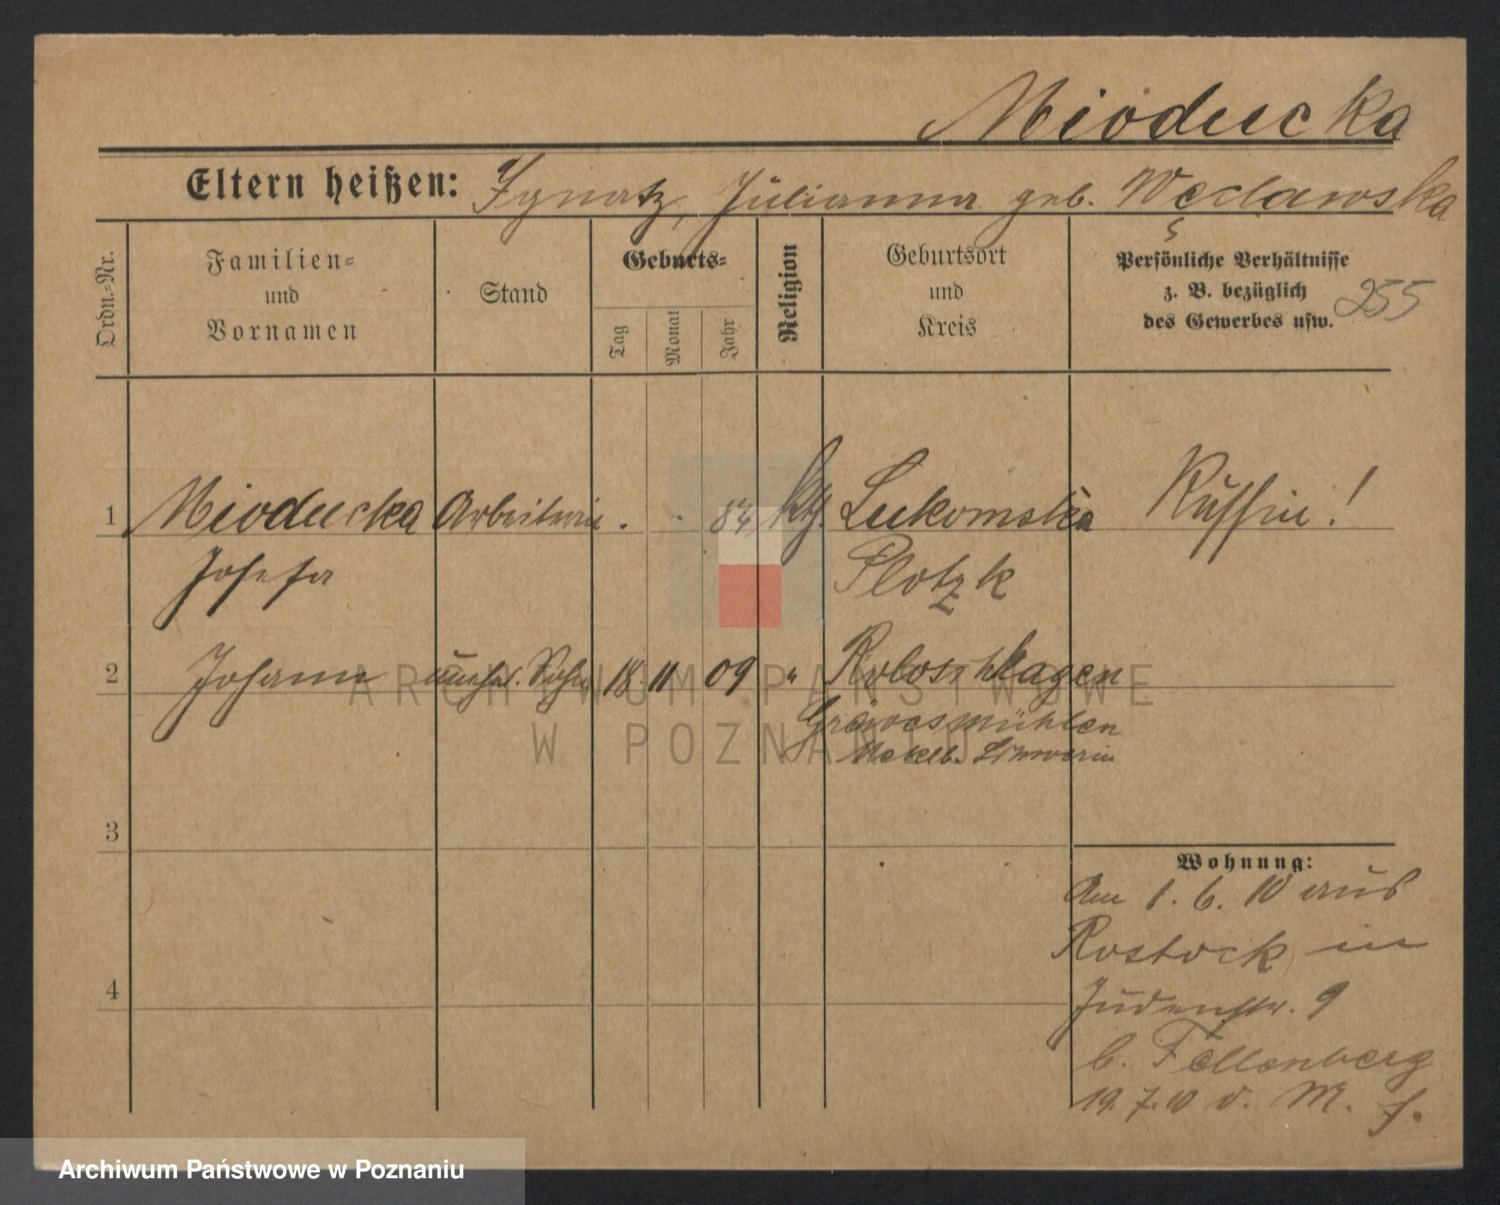 Mioducka
Eltern heißen: Ignatz, Julianna geb. Węclawska
Ordn.=Nr.
Familien=
und
Vornamen
Stand
Geburts=
Tag
Monat
Jahr
Religion
Geburtsort
und
Kreis
Persönliche Verhältnisse
z. B. bezüglich
des Gewerbes usw.
255
1 Mioducka Arbeiterin . . 84 ktl. Lukomska Russin!
Josefa Plotzk
2 Johann unehel. Sohn 18 11 09 " Roloffshagen
Grevesmühlen
Meckelb. Schwerin
3
4
Wohnung:
Am 1. 6. 10 aus
Rostock in
Judenstr. 9
b. Fellenberg
19. 7. 10 v. M.
ARCHIWUM PAŃSTWOWE
W POZNANIU
Archiwum Państwowe w Poznaniu